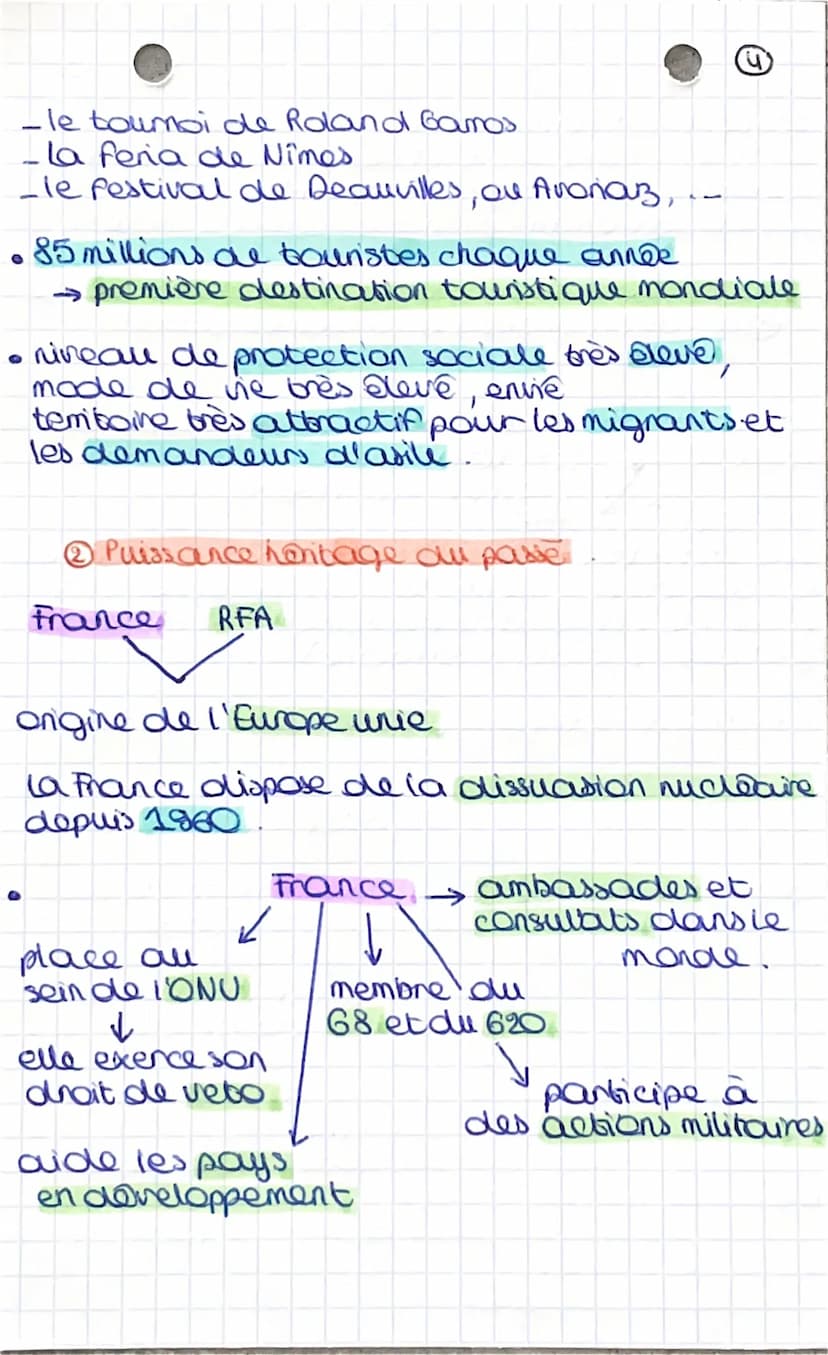 4
- le tournoi de Roland Garros
- la feria de Nîmes
- le festival de Deauvilles, ou Avoriaz, ...
• 85 millions de touristes chaque année
→ première destination touristique mondiale
• niveau de protection sociale très élevé,
mode de vie très élevé, envié
territoire très attractif pour les migrants et
les demandeurs d'asile.
② Puissance héritage du passé
France RFA
origine de l'Europe unie
la France dispose de la dissuasion nucléaire
depuis 1960.
• France → ambassades et
consultats dans le
monde.
place au
sein de l'ONU
↓
elle exerce son
droit de veto
membre du
G8 et du G20
participe à
des actions militaires
aide les pays
en développement